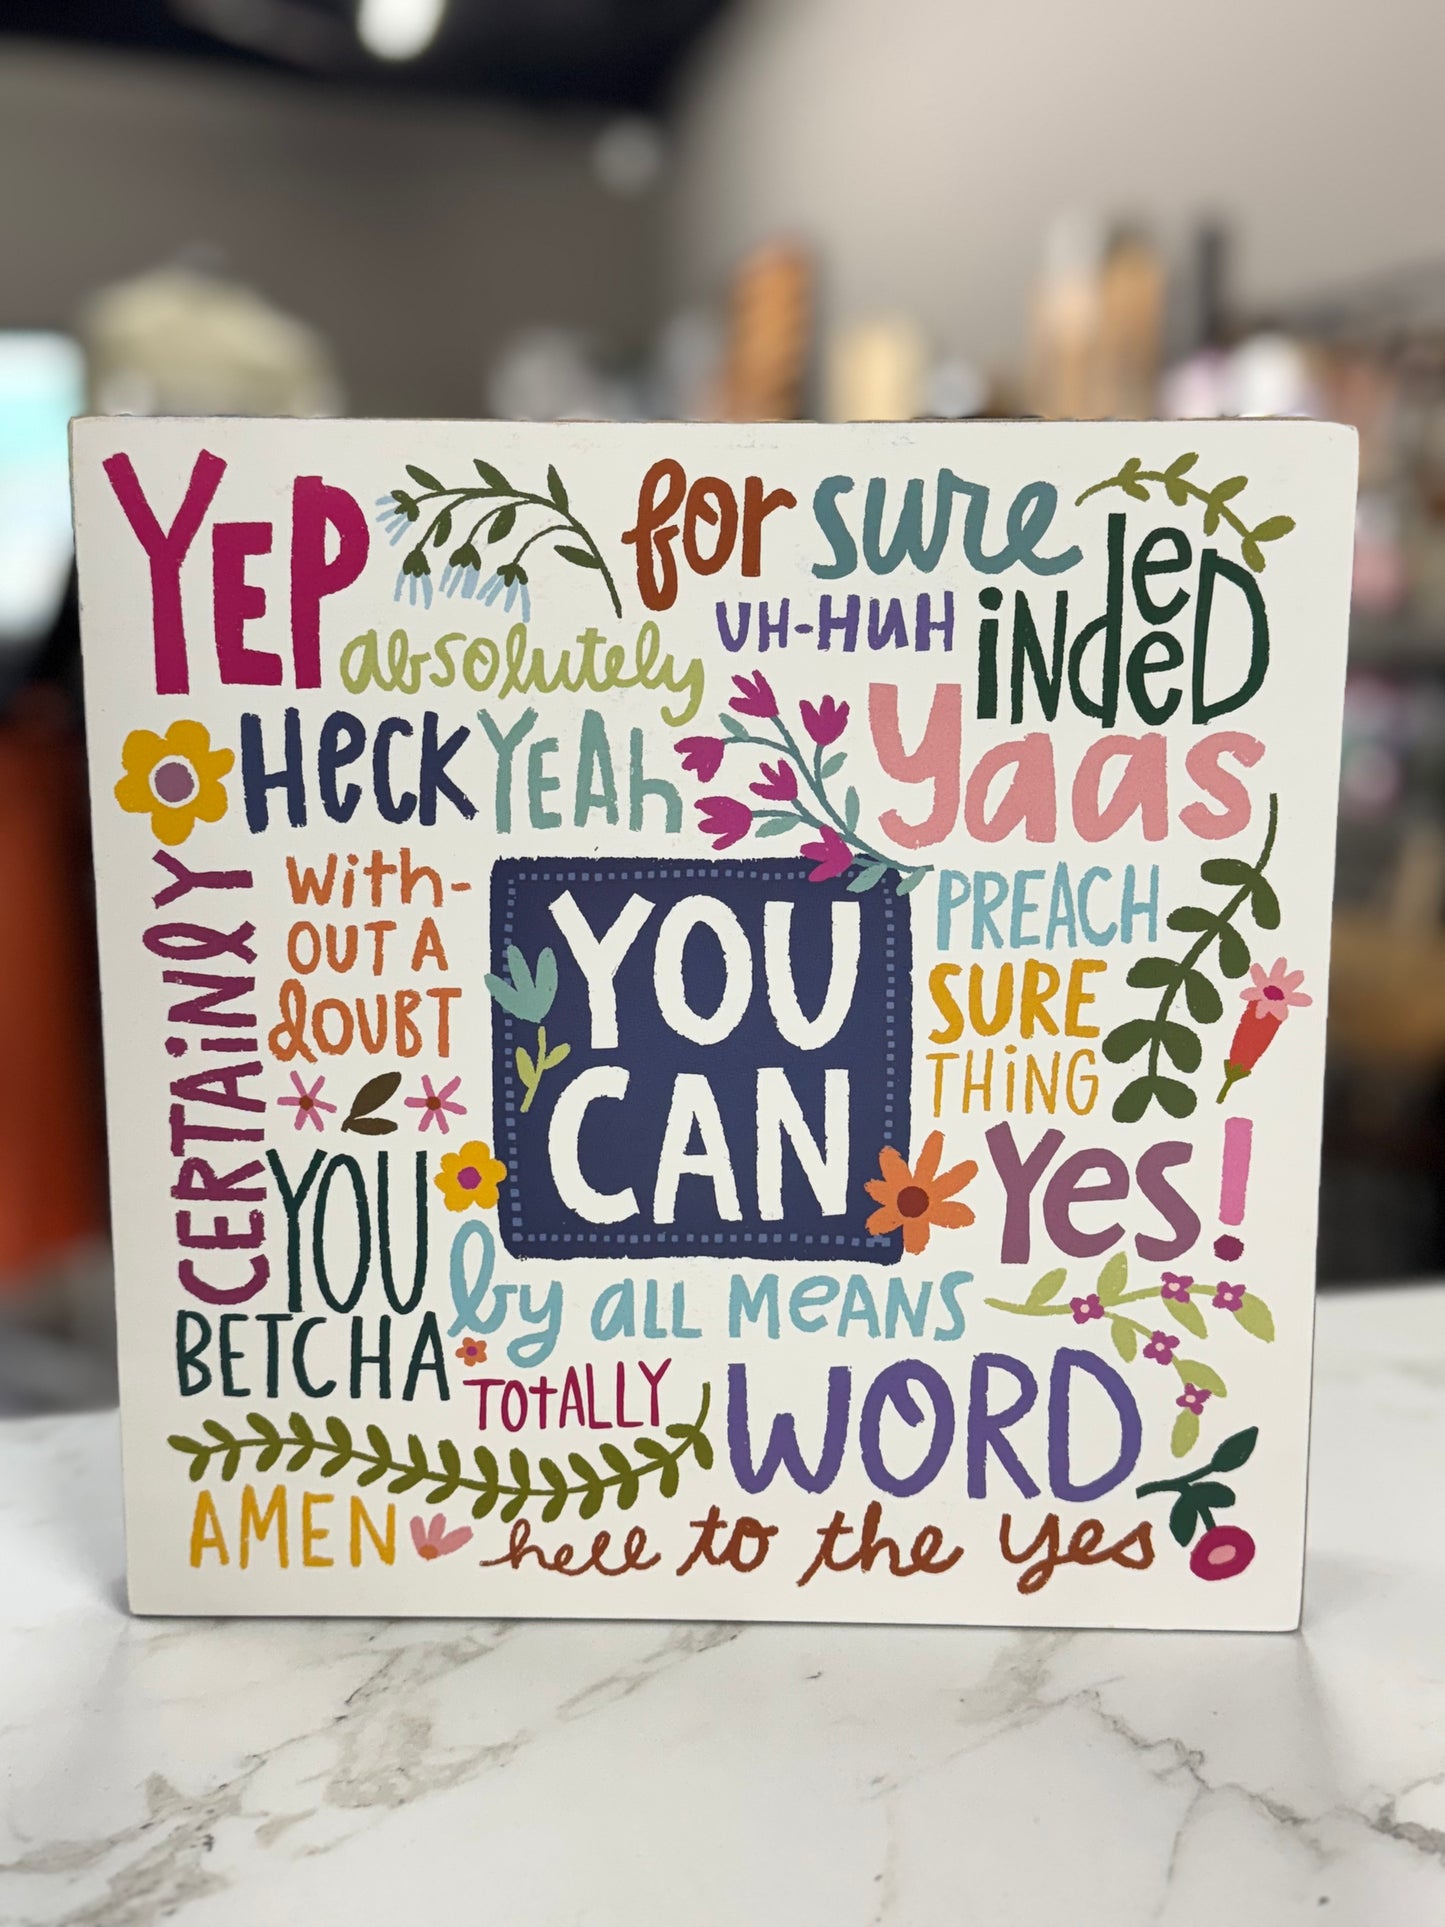 YEP
for sure
absolutely
UH-HUH
iNdeeD
HeCK YEAh
yaas
CERTAiNlY
With-
OUT A
dOUBT
YOU
CAN
PREACH
SURE
THiNG
YOU
BETCHA
Yes!
by all MeANS
TOtALLY
WORD
AMEN
hell to the yes